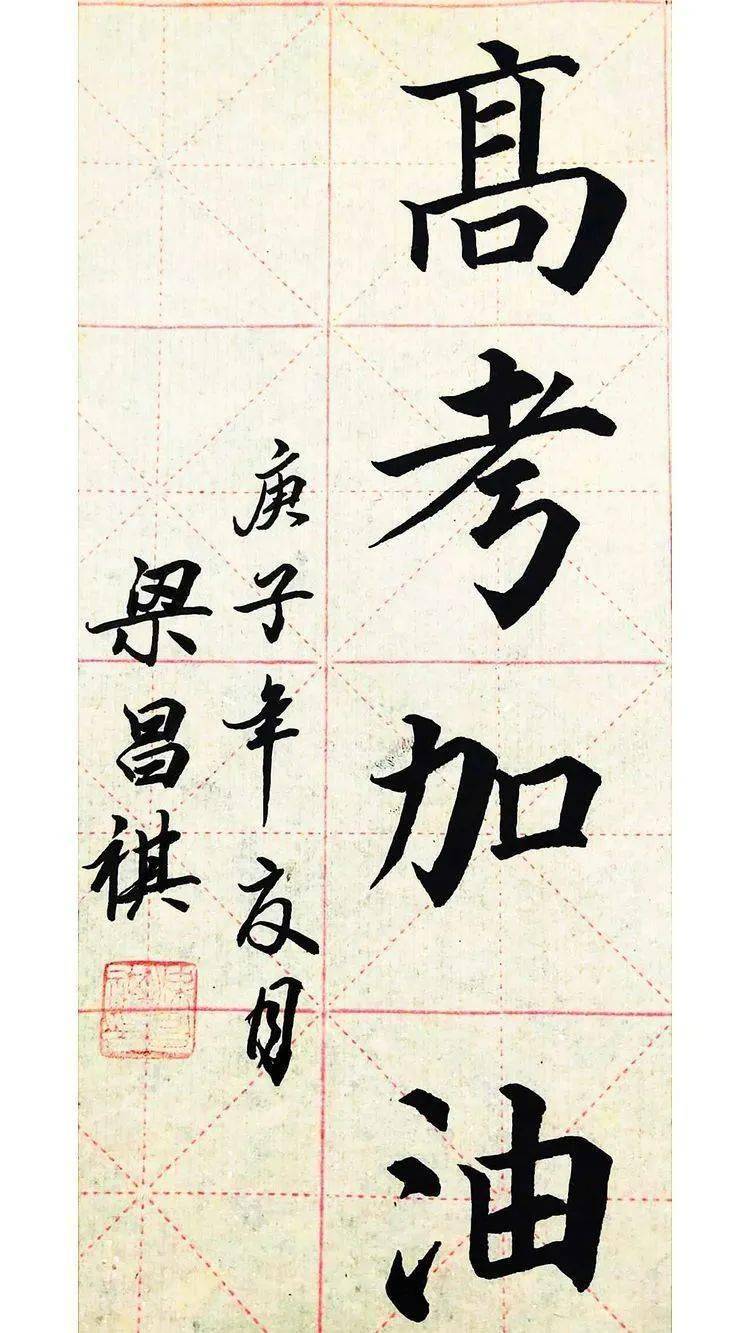 髙考加油
庚子年夏月
梁昌祺